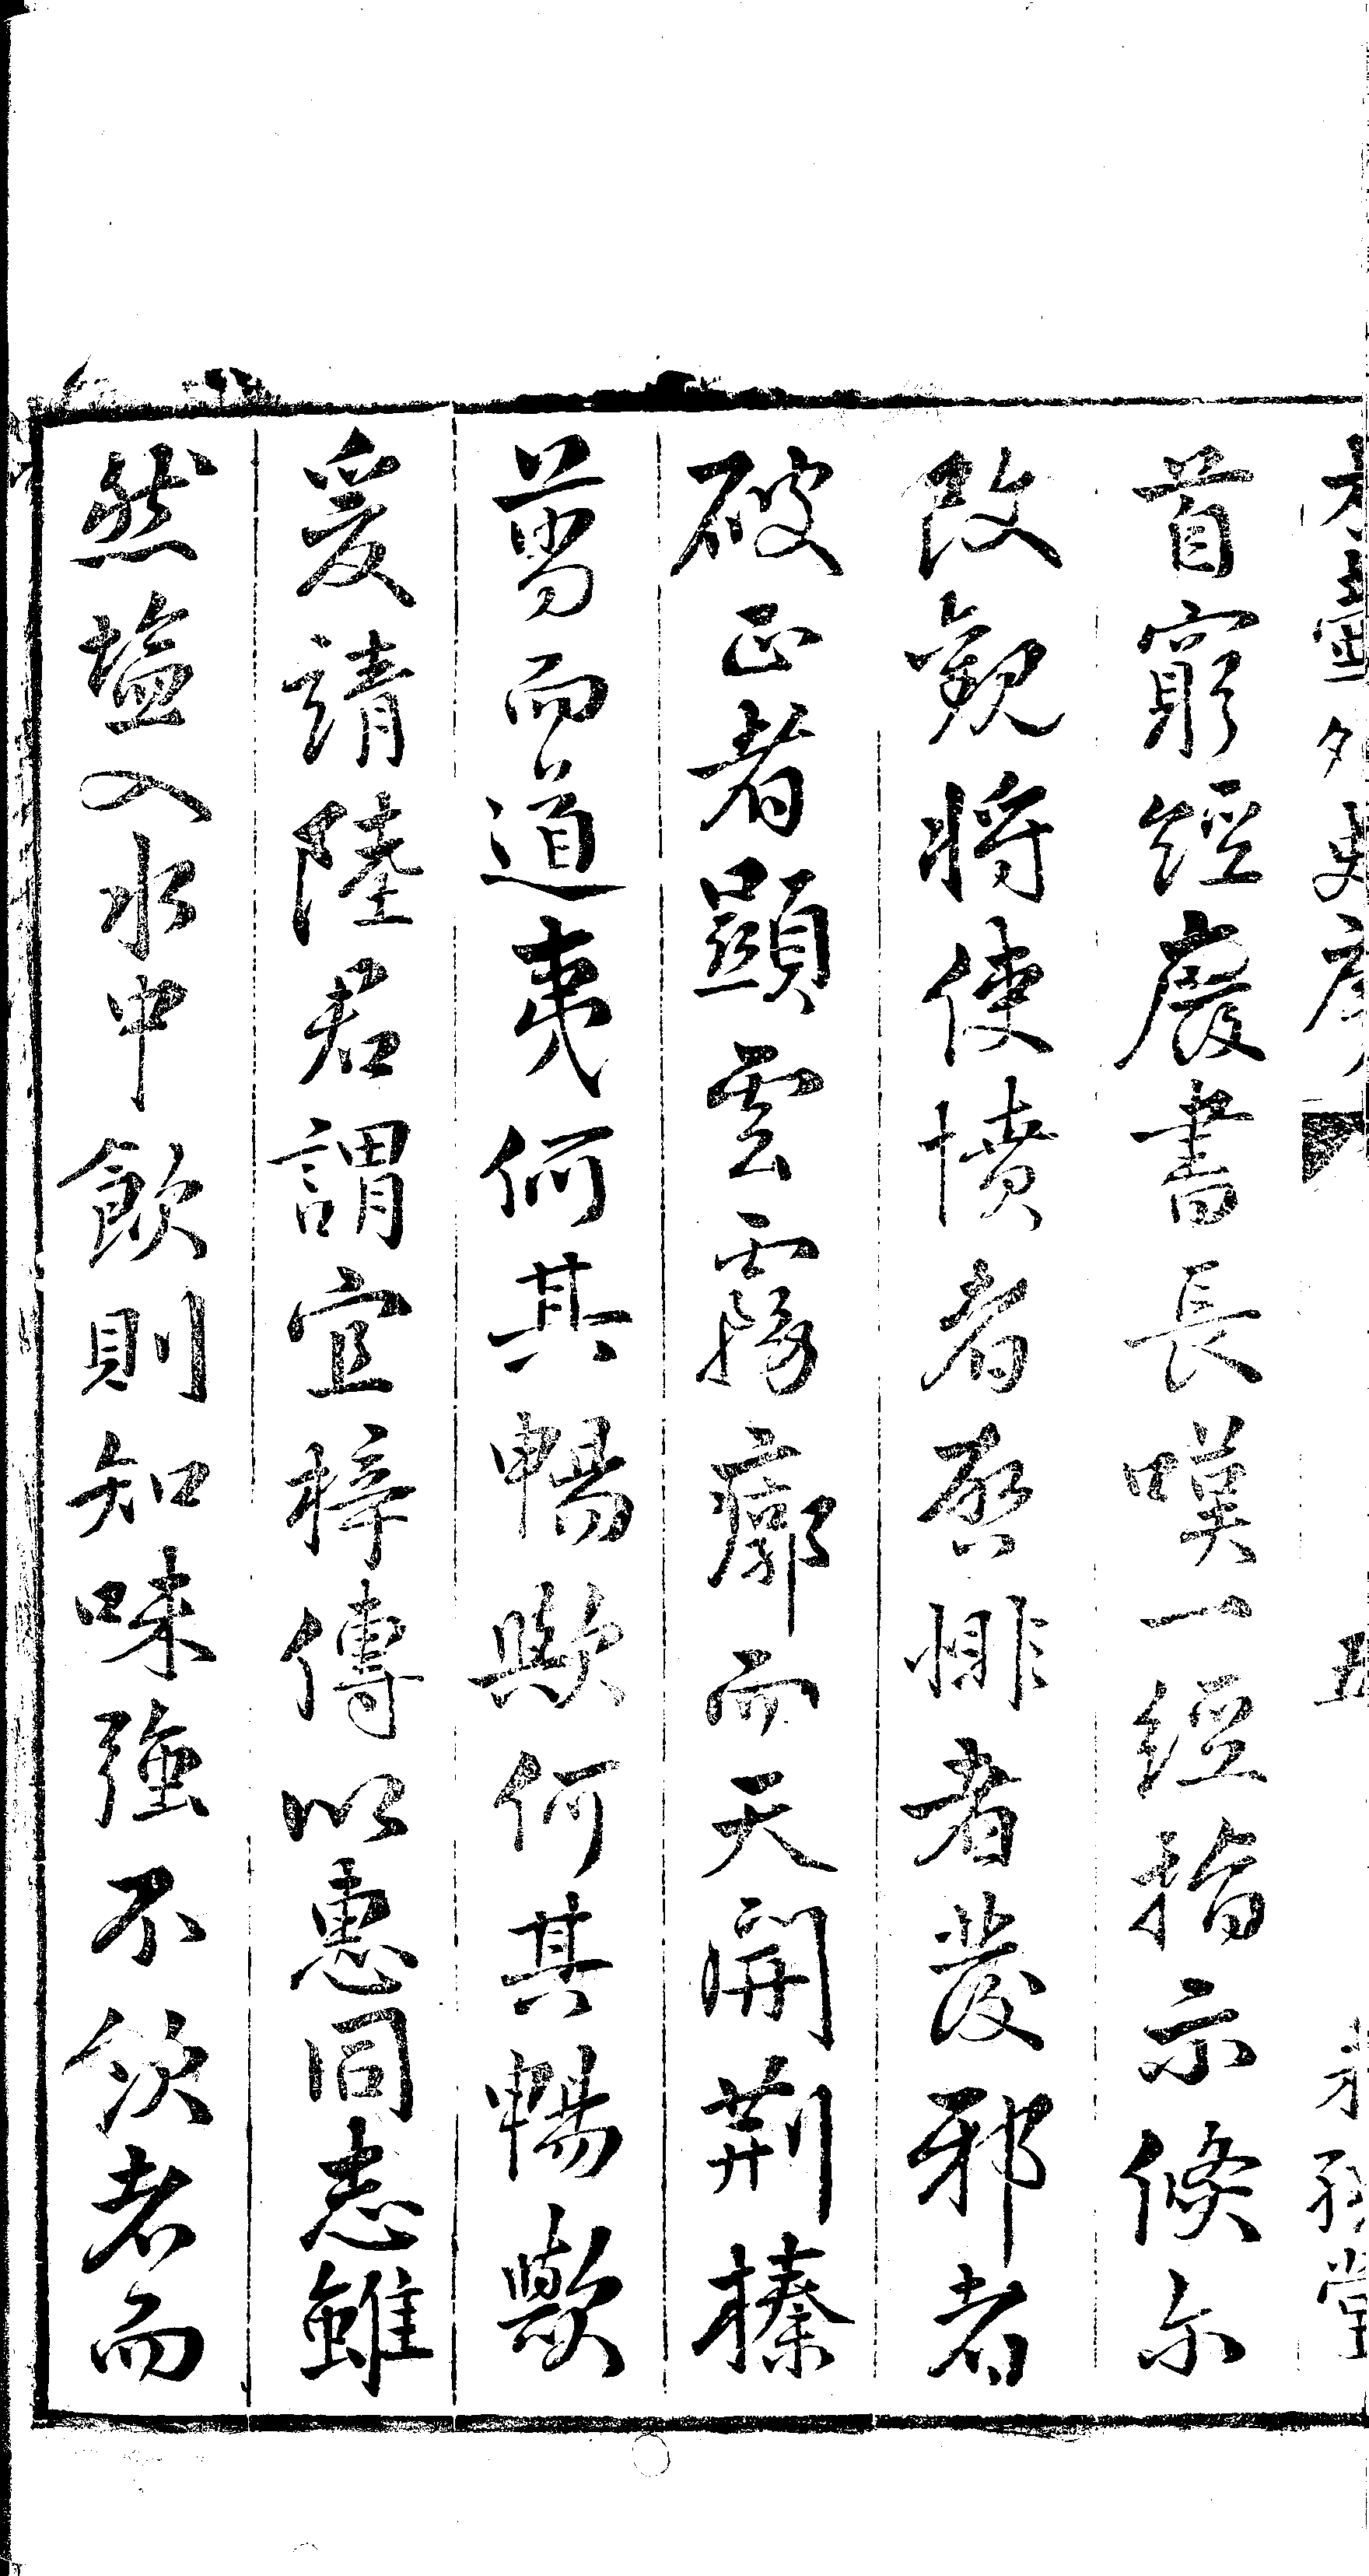 方壺外史序 五
首窮經廢書長嘆一經指示倏尒
改觀將使憤者啓悱者發邪者
破正者顯雲霧廓而天開荊榛
剪而道夷何其暢歟何其暢歟
爰請陸君謂宜梓傳以惠同志雖
然塩入水中飲則知味強不飲者而